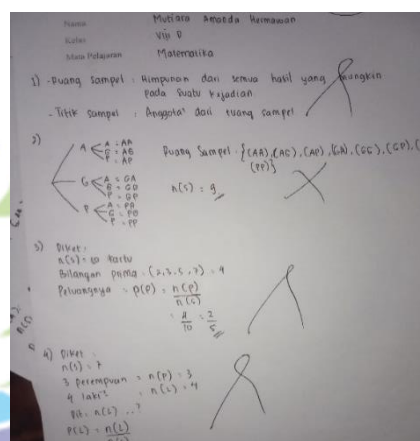 Nama Mutiara Amanda Hermawan
Kelas VIII D
Mata Pelajaran Matematika
1) - Ruang Sampel : Himpunan dari semua hasil yang mungkin
pada suatu kejadian
- Titik sampel : Anggota dari ruang sampel
2)
A A = AA
G = AG
P = AP
G A = GA
G = GG
P = GP
P A = PA
G = PG
P = PP
Ruang Sampel : {(AA), (AG), (AP), (GA), (GG), (GP), (
(PP)}
n(S) = 9
3) Diket :
n(S) = 10 kartu
Bilangan prima = (2,3,5,7) = 4
Peluangnya = P(P) = n(P)
n(S)
= 4 = 2
10 5
4) Diket :
n(S) = 7
3 perempuan = n(P) = 3
4 laki² = n(L) = 4
Dit = n(L) ...?
P(L) = n(L)